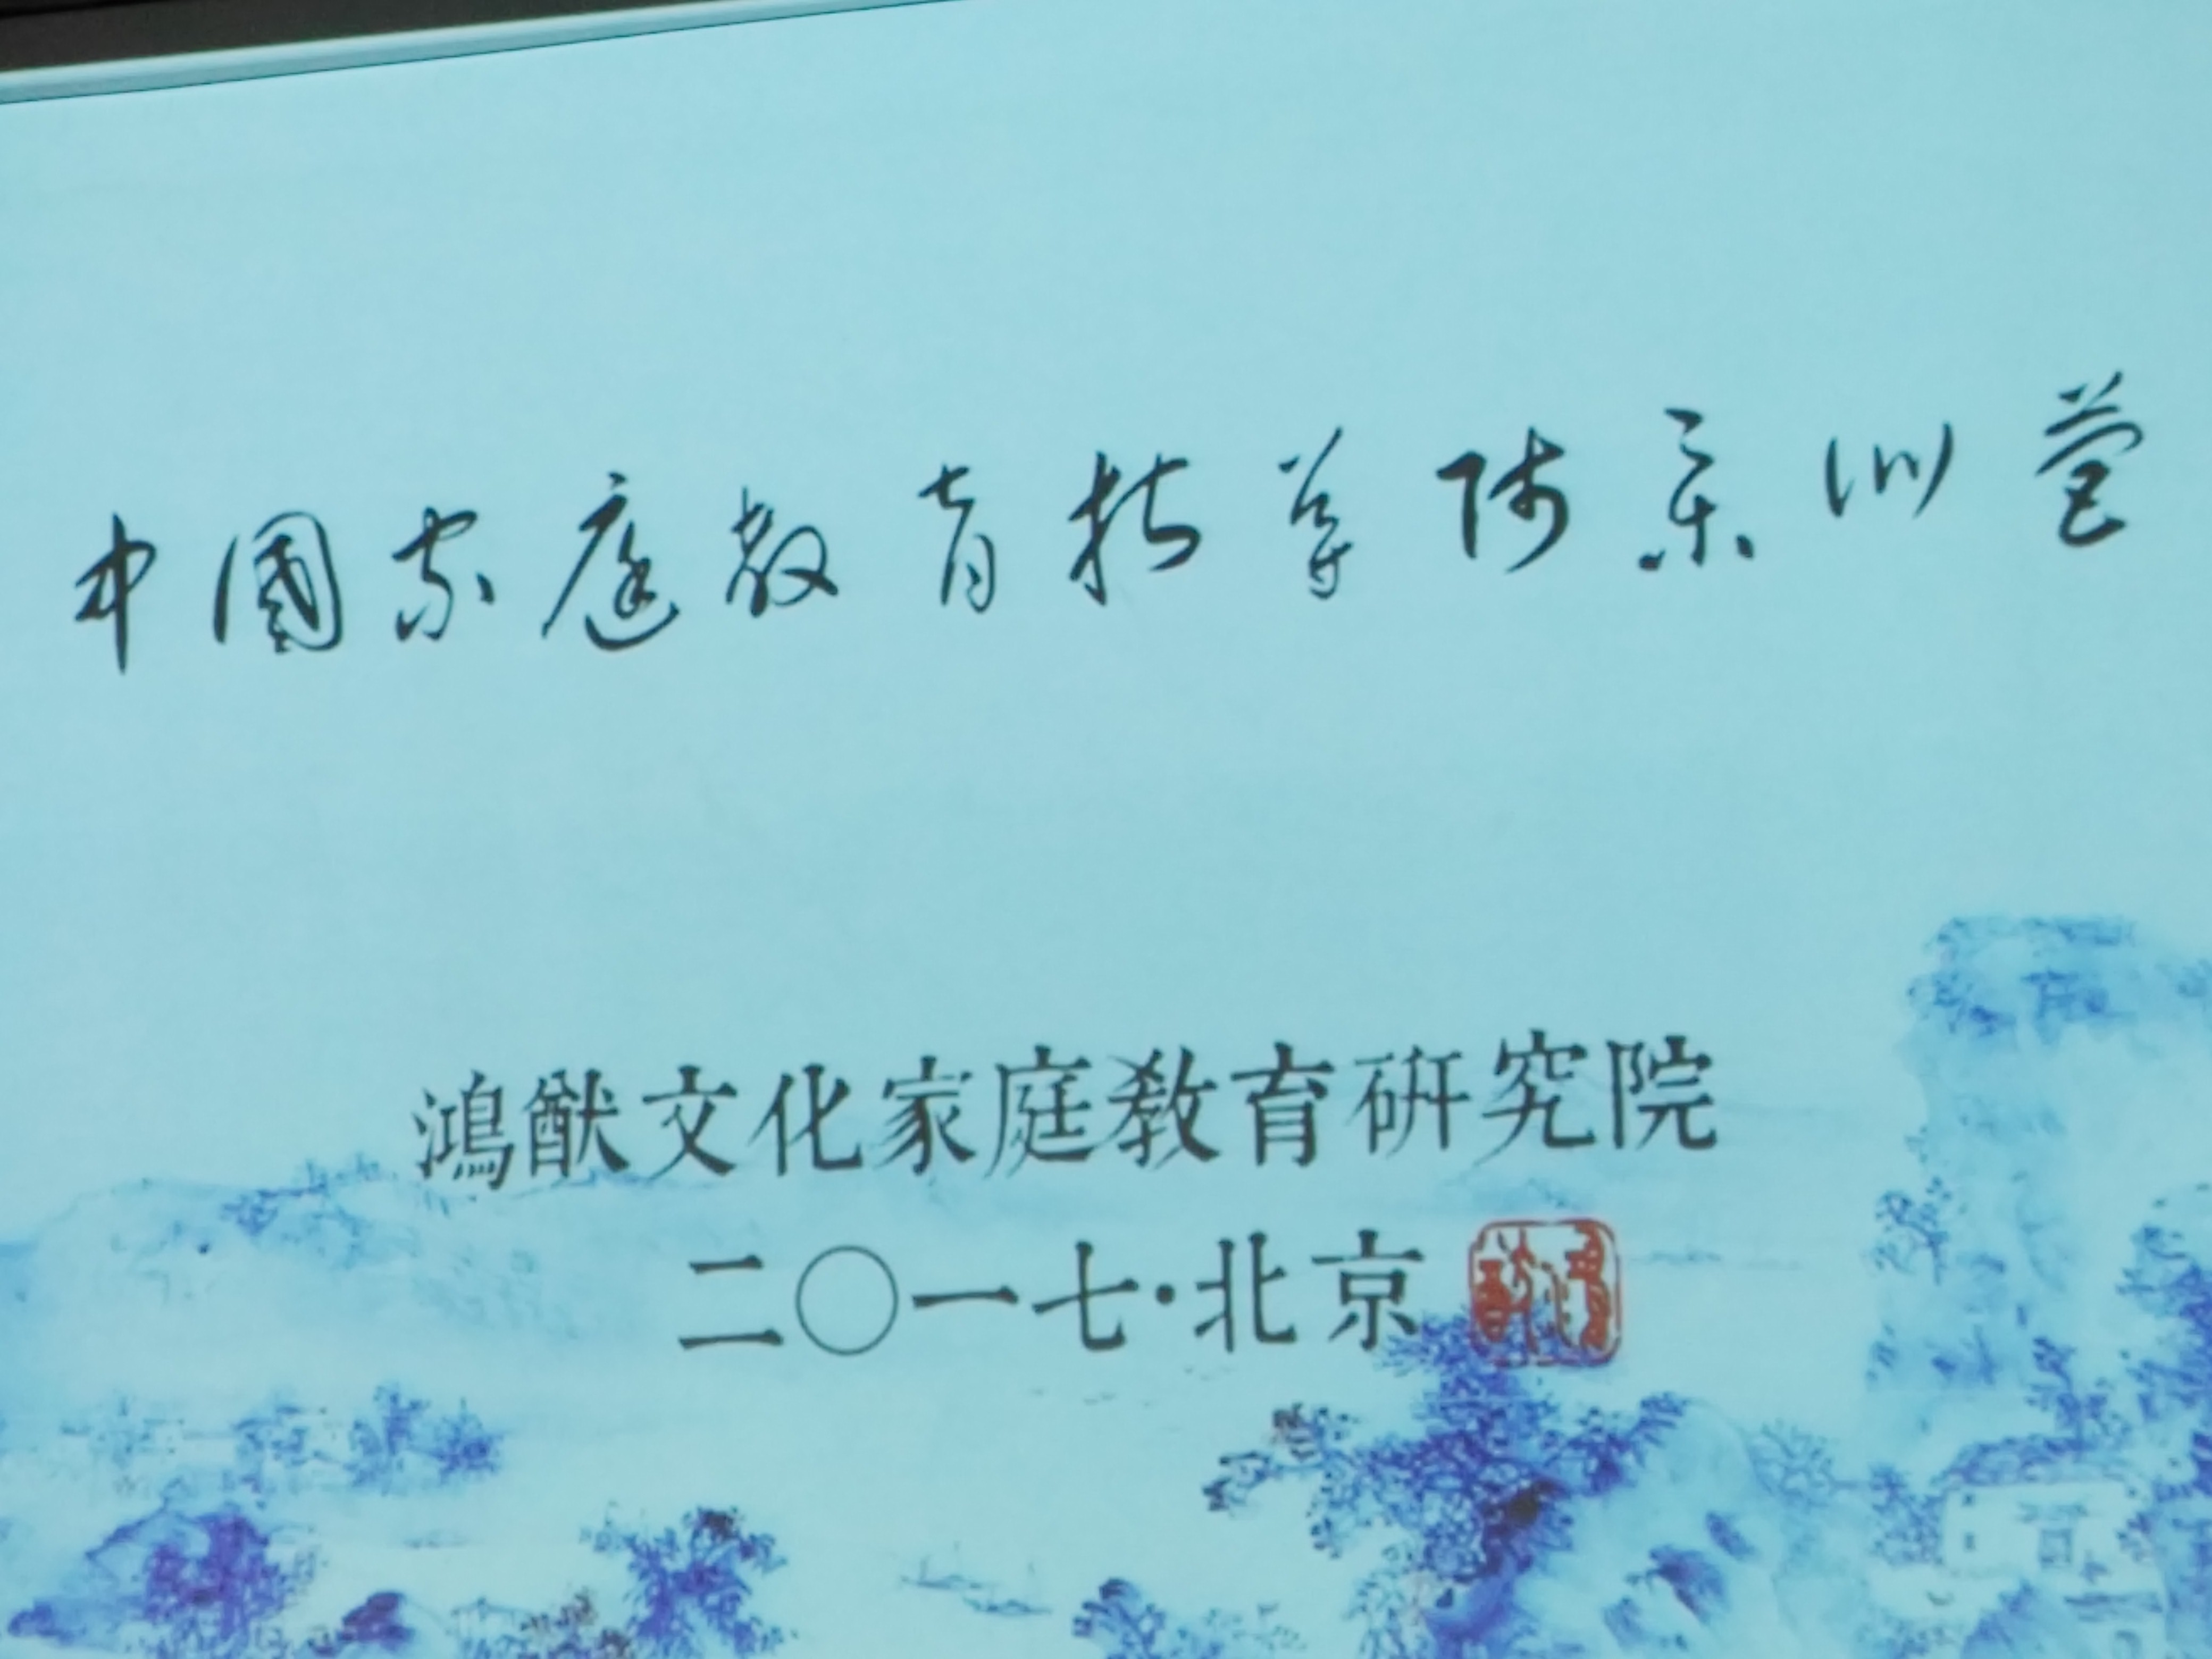 中國家庭教育指导师亲训营
鴻猷文化家庭教育研究院
二〇一七·北京